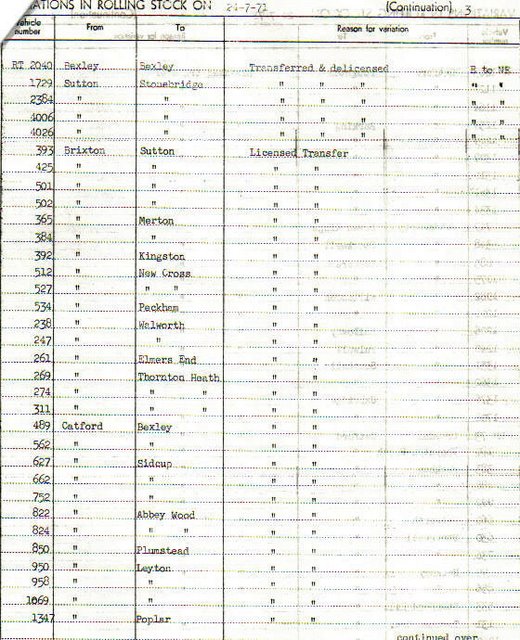 ATIONS IN ROLLING STOCK ON 24-7-71 (Continuation) 3
Vehicle number From To Reason for variation
RT 2040 Bexley Bexley Transferred & delicensed E to NE
1729 Sutton Stonebridge " " " " "
2384 " " " " " " "
4006 " " " " " " "
4026 " " " " " " "
393 Brixton Sutton Licensed Transfer
425 " " " "
501 " " " "
502 " " " "
365 " Merton " "
384 " " " "
392 " Kingston " "
512 " New Cross " "
527 " " " " "
534 " Peckham " "
238 " Walworth " "
247 " " " "
261 " Elmers End " "
269 " Thornton Heath " "
274 " " " " "
311 " " " " "
489 Catford Bexley " "
562 " " " "
627 " Sidcup " "
662 " " " "
752 " " " "
822 " Abbey Wood " "
824 " " " " "
850 " Plumstead " "
950 " Leyton " "
958 " " " "
1069 " " " "
1347 " Poplar " "
continued over